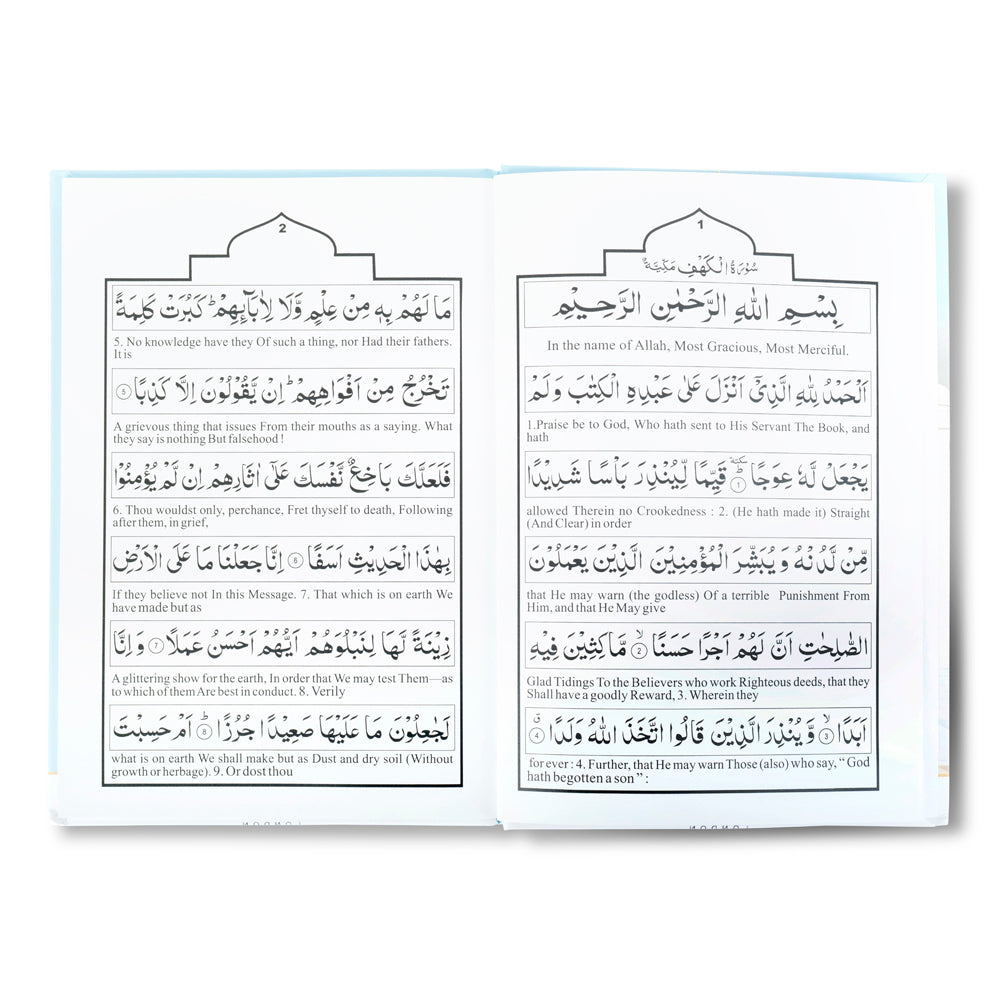 1
سُوْرَةُ الْكَهْفِ مَكِّيَّةٌ
بِسْمِ اللّٰهِ الرَّحْمٰنِ الرَّحِيْمِ
In the name of Allah, Most Gracious, Most Merciful.
اَلْحَمْدُ لِلّٰهِ الَّذِيْٓ اَنْزَلَ عَلٰى عَبْدِهِ الْكِتٰبَ وَلَمْ
1.Praise be to God, Who hath sent to His Servant The Book, and
hath
يَجْعَلْ لَّهٗ عِوَجًا ؕ سكتة ۝1 قَيِّمًا لِّيُنْذِرَ بَاْسًا شَدِيْدًا
allowed Therein no Crookedness : 2. (He hath made it) Straight
(And Clear) in order
مِّنْ لَّدُنْهُ وَيُبَشِّرَ الْمُؤْمِنِيْنَ الَّذِيْنَ يَعْمَلُوْنَ
that He may warn (the godless) Of a terrible Punishment From
Him, and that He May give
الصّٰلِحٰتِ اَنَّ لَهُمْ اَجْرًا حَسَنًا ۙ۝2 مَّاكِثِيْنَ فِيْهِ
Glad Tidings To the Believers who work Righteous deeds, that they
Shall have a goodly Reward, 3. Wherein they
اَبَدًا ۙ۝3 وَّيُنْذِرَ الَّذِيْنَ قَالُوا اتَّخَذَ اللّٰهُ وَلَدًا ۝4 ق
for ever : 4. Further, that He may warn Those (also) who say, “ God
hath begotten a son ” :
2
مَا لَهُمْ بِهٖ مِنْ عِلْمٍ وَّلَا لِاٰبَآئِهِمْ ؕ كَبُرَتْ كَلِمَةً
5. No knowledge have they Of such a thing, nor Had their fathers.
It is
تَخْرُجُ مِنْ اَفْوَاهِهِمْ ؕ اِنْ يَّقُوْلُوْنَ اِلَّا كَذِبًا ۝5
A grievous thing that issues From their mouths as a saying. What
they say is nothing But falsehood !
فَلَعَلَّكَ بَاخِعٌ نَّفْسَكَ عَلٰٓى اٰثَارِهِمْ اِنْ لَّمْ يُؤْمِنُوْا
6. Thou wouldst only, perchance, Fret thyself to death, Following
after them, in grief,
بِهٰذَا الْحَدِيْثِ اَسَفًا ۝6 اِنَّا جَعَلْنَا مَا عَلَى الْاَرْضِ
If they believe not In this Message. 7. That which is on earth We
have made but as
زِيْنَةً لَّهَا لِنَبْلُوَهُمْ اَيُّهُمْ اَحْسَنُ عَمَلًا ۝7 وَاِنَّا
A glittering show for the earth, In order that We may test Them—as
to which of them Are best in conduct. 8. Verily
لَجٰعِلُوْنَ مَا عَلَيْهَا صَعِيْدًا جُرُزًا ؕ۝8 اَمْ حَسِبْتَ
what is on earth We shall make but as Dust and dry soil (Without
growth or herbage). 9. Or dost thou